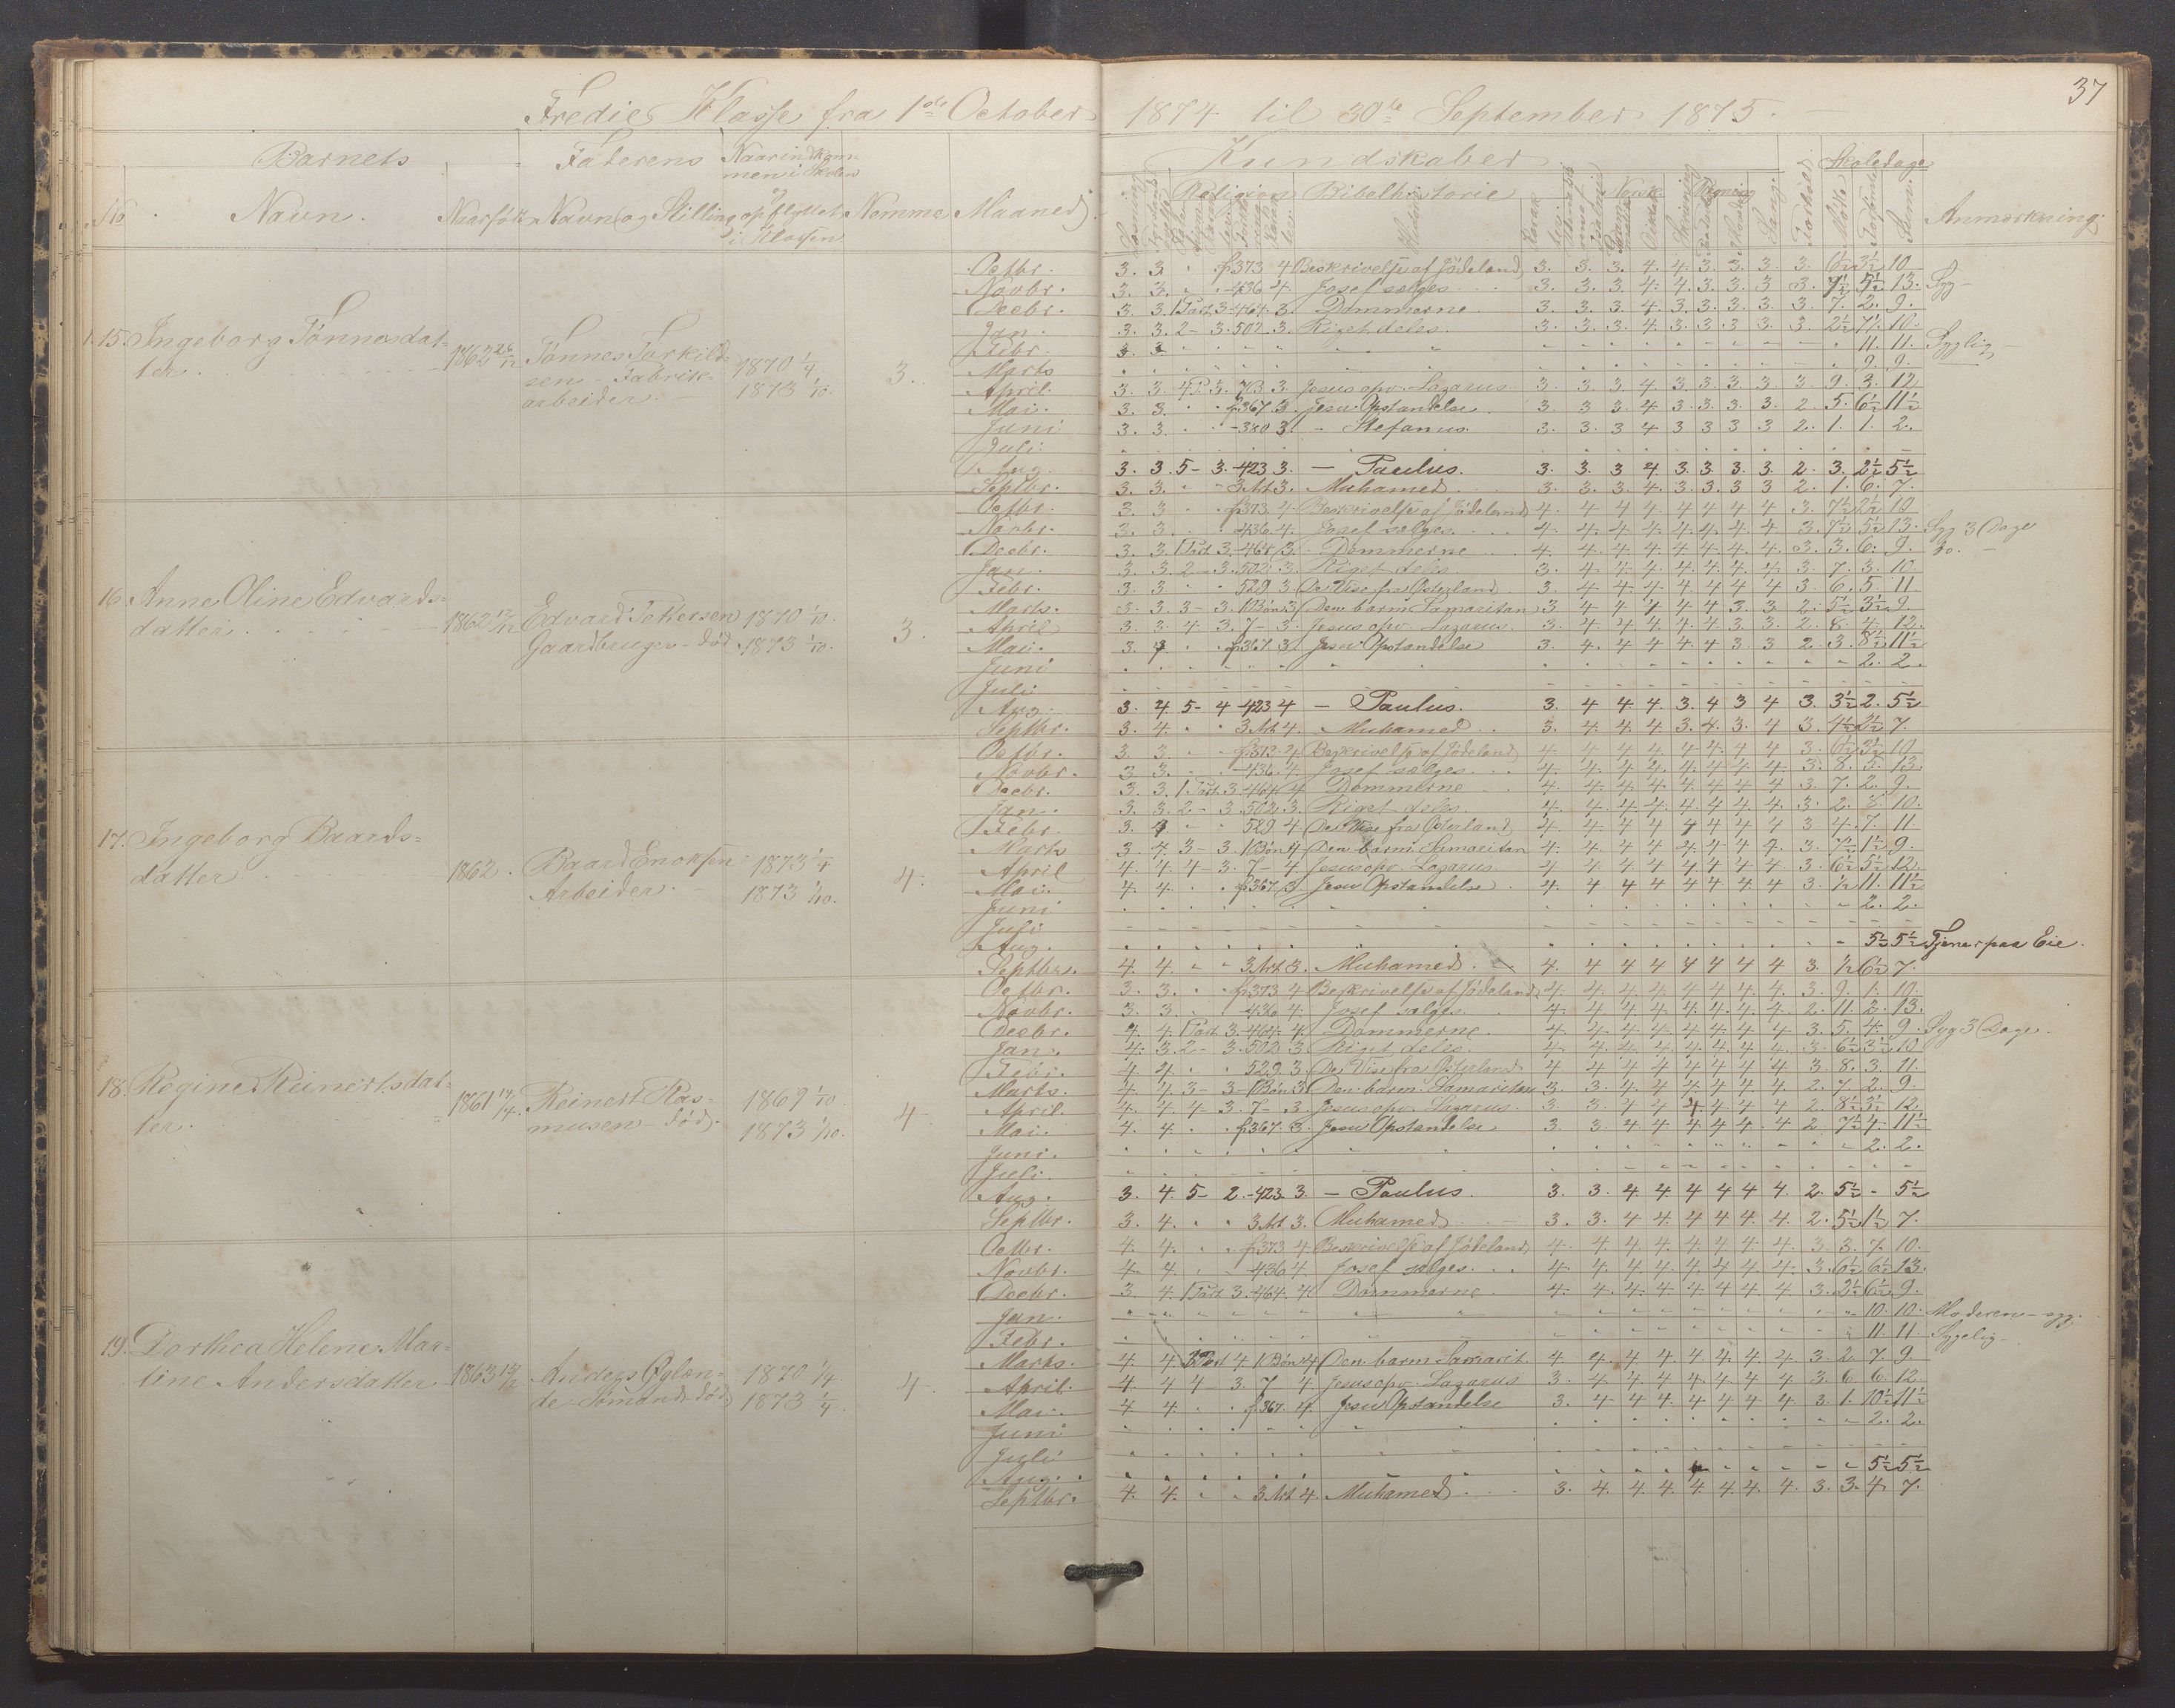 37
Tredie Klasse fra 1ste October 1874 til 30te September 1875.
Barnets Faderens Naar indkom-
men i Skolen
og
opflyttet
i Klassen
No. Navn. Naar født Navn og Stilling Nemme Maaned.
Kundskaber
Religion Bibelhistorie Norsk Regning Sang. Forhold Skoledage
Mødte Forsømte Sum Anmærkning.
15. Ingeborg Tønnesdat-
ter. 1862 Tønnes Torkild-
sen - Fabrik-
arbeider. 1870 1/4
1873 1/10. 3.
Octbr. 3. 3. f. 373 4 Beskrivelse af Jødeland 3. 3. 3. 4. 4. 3. 3. 3 3. 6½ 3½ 10 Syg
Novbr. 3. 3. - 436 4. Josef sælges 3. 3. 3. 4. 4. 3. 3. 3 3. 7½ 5½ 13.
Decbr. 3 3. 1 Part. 3 - 464. 3. Dommerne 3. 3. 3. 4. 3. 3. 3. 3 3. 7. 2. 9.
Jan. 3. 3. 2 - 3. 502. 3. Riget deles. 3. 3. 3. 4. 3. 3. 3. 3. 3. 2½ 7½ 10.
Febr. 11. 11. Syglig
Marts 9. 9.
April. 3. 3. 4 P. 3. 7 B 3. Jesus opv. Lazarus 3. 3. 3. 4. 3. 3. 3. 3 3. 9. 3. 12
Mai. 3. 3. f. 367. 3. Jesu Opstandelse 3. 3 3. 4. 3. 3. 3. 3. 2. 5. 6½ 11½
Juni 3. 3. - 380 3. - Stefanus. 3. 3. 3 4 3 3 3 3 2. 1. 1. 2.
Juli
Aug. 3. 3. 5 - 3. - 423 3. - Paulus. 3. 3. 3 4. 3. 3. 3. 3. 2. 3. 2½ 5½
Septbr. 3. 3. 3 Art 3. Muhamed 3. 3. 3. 4. 3. 3. 3 3 2. 1. 6. 7.
16. Anne Oline Edvards-
datter 1862 Edvard Pettersen
Gaardbruger - død. 1870 1/10.
1873 1/10. 3.
Octbr. 3. 3 f. 373 4 Beskrivelse af Jødeland 4. 4 4 4 4 4 4 4 3. 7½ 2½ 10
Novbr. 3. 3 436 4. Josef sælges. 4. 4. 4. 4. 4. 4. 4. 4 3. 7½ 5½ 13. Syg 3 Dage
Decbr. 3. 3. 1 Part. 3. - 464. 3. Dommerne 4. 4. 4. 4. 4. 4. 4. 4. 3. 3. 6. 9. Do.
Jan. 3. 3. 2 - 3. 502. 3. Riget deles. 3. 4. 4. 4. 4. 4. 4. 4 3. 7. 3. 10.
Febr. 3. 3 529 3 De Vise fra Østerland 3. 4 4. 4. 4 4 4 4 3 6. 5 11
Marts. 3. 3. 3 - 3. 1 Bøn 3 Den barm. Samaritan 3. 4 4 4 4 4 3. 3. 2. 5½ 3½ 9.
April 3. 3. 4 3. 7 - 3. Jesus opv. Lazarus. 3. 4. 4 4 4. 4 3. 3. 2. 8. 4. 12.
Mai. 3. f. 367. 3. Jesu Opstandelse 3. 4. 4 4 4. 4 3. 3 2. 3. 8½ 11½
Juni 2. 2.
Juli
Aug. 3. 4. 5 - 4 - 423 4 - Paulus. 3. 4 4 4. 3. 4 3 4 3. 3½ 2. 5½
Septbr. 3. 4. 3 Art 4. Muhamed 3. 4. 4. 4. 3. 4. 3. 4 3. 4½ 2½ 7.
17. Ingeborg Baards-
datter 1862. Baard Enoksen
Arbeider. 1873 1/4
1873 1/10. 4.
Octbr. 3. 3. f. 373. 4 Beskrivelse af Jødeland 4. 4. 4. 4 4. 4. 4 4 3. 6½ 3½ 10
Novbr. 3 3. - 436. 4. Josef sælges. 4. 4. 4. 4. 4. 4. 4. 4. 3. 8. 5. 13.
Decbr. 3. 3. 1 Part. 3 - 464 4 Dommerne 4. 4. 4. 4. 4. 4. 4. 4 3 7. 2. 9.
Jan. 3. 3. 2 - 3. 502. 3. Riget deles. 4. 4. 4. 4. 4. 4. 4. 4. 3. 2. 8. 10.
Febr. 3. 529. 4 De Vise fra Østerland 4. 4. 4. 4 4 4 4 4 3 4. 7. 11
Marts 3. 4. 3 - 3. 1 Bøn 4 Den barm. Samaritan 4. 4. 4. 4 4. 4. 4 4. 3. 7½ 1½ 9.
April 4. 4. 4 - 3. 7 - 4 Jesus opv. Lazarus 4. 4 4 4 4 4 4 4 3. 6½ 5½ 12.
Mai. 4. 4. f. 367. 3 Jesu Opstandelse 4. 4 4 4 4 4 4 4 3. ½ 11. 11½
Juni 2. 2.
Juli
Aug. 5½ 5½ Tjener paa Eie.
Septbr. 4. 4. 3 Art 3. Muhamed. 4. 4 4 4 4 4 4 4 3. ½ 6½ 7.
18. Regine Reinertsdat-
ter. 1861 Reinert Ras-
musen - død. 1869 1/10
1873 1/10. 4
Octbr. 3. 3. f. 373 4 Beskrivelse af Jødeland 4. 4. 4. 4 4. 4. 4. 4. 3. 9. 1. 10.
Novbr. 3. 3. 436 4. Josef sælges. 4. 4. 4. 4. 4. 4. 4. 4 2. 11. 2. 13.
Decbr. 4. 4. 1 Part 3. - 464. 4. Dommerne. 4. 4. 4. 4. 4. 4. 4 4 3. 5. 4. 9. Syg 3 Dage.
Jan. 4. 3. 2 - 3. 502. 3. Riget deles. 4. 4. 4. 4. 4. 4. 4. 4. 3. 6½ 3½ 10
Febr. 4 4. 529. 3. De Vise fra Østerland 4 4 4 4 4 4 4 4 3 8. 3. 11.
Marts. 4. 4. 3 - 3 - 1 Bøn 3 Den barm. Samaritan 3. 3. 4. 4. 4. 4. 4. 4. 2. 7. 2. 9.
April. 4. 4. 4 3. 7 - 3. Jesus opv. Lazarus. 3. 3. 4 4 4. 4. 4. 4. 2. 8½ 3½ 12
Mai. 4. 4. f. 367. 3. Jesu Opstandelse 3. 3 4. 4. 4. 4. 4. 4 2. 7½ 4. 11½
Juni. 2. 2.
Juli.
Aug. 3. 4. 5 - 2. - 423. 3. - Paulus. 3. 3. 4 4. 4 4 4 4. 2. 5½ - 5½
Septbr. 3. 4. 3 Art. 3. Muhamed 3. 3. 4. 4. 4 4 4. 4. 2. 5½ 1½ 7.
19. Dorthea Helene Mar-
tine Andersdatter 1863 Anders Øglæn-
de Sømand død 1870 1/4
1873 1/4. 4.
Octbr. 4. 4. f. 373 4 Beskrivelse af Jødeland 4. 4. 4. 4. 4. 4. 4. 4. 3 3. 7. 10.
Novbr. 4. 4. 436 4. Josef sælges. 4. 4. 4. 4. 4. 4. 4. 4. 3. 6½ 6½ 13.
Decbr. 3. 4. 1 Part. 3. - 464. 4. Dommerne 4. 4. 4. 4. 4. 4. 4. 4 3. 2½ 6½ 9.
Jan. 10. 10. Moderen - syg.
Febr. 11. 11 Sygelig
Marts. 4 4 3 Part 4 1 Bøn 4 Den barm Samarit. 4. 4. 4. 4. 4. 4. 4. 4. 3. 2. 7. 9
April. 4. 4 4 3. 7 4. Jesus opv. Lazarus 3. 4. 4. 4. 4. 4. 4. 4 3. 6 6. 12.
Mai. 4 4. f. 367. 4. Jesu Opstandelse 3. 4 4 4. 4. 4. 4. 4 3. 1. 10½ 11½
Juni 2. 2.
Juli
Aug. 5½ 5½
Septbr. 4. 4. 3 Art 4. Muhamed 3. 4. 4. 4. 4 4. 4. 4. 3. 3. 4. 7.